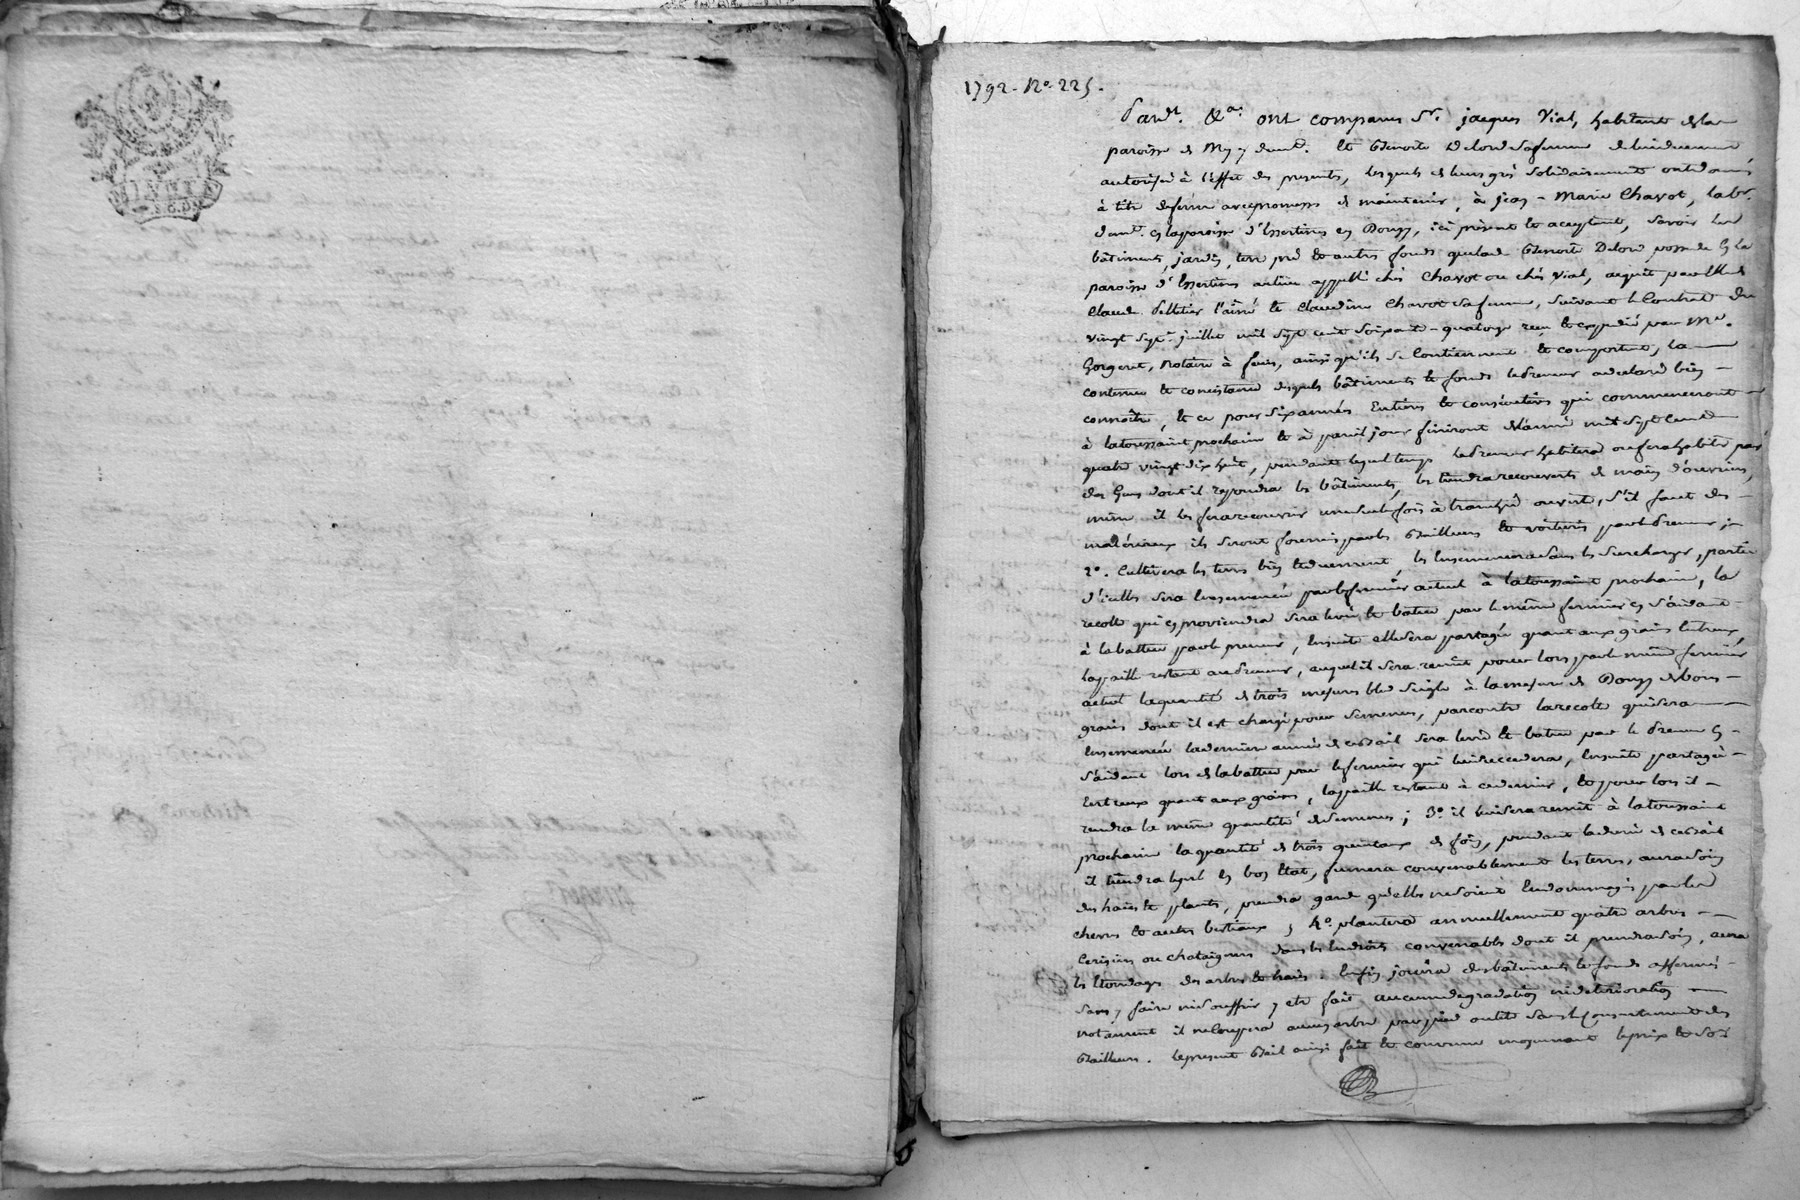 1792. No. 225.
Pardt. &a. ont comparus Sr. jacques Vial, habitant de la
paroisse de demt. et Benoite Delord sa femme de lui duement
autorisée à l'effet des presentes, lesquels de leurs grés solidairement ont donnés
à titre de ferme avec promesse de maintenir, à jean-Marie Chavot, labr.
demt. en la paroisse d'Essertines en Donzy, ici présent et aceptant, savoir les
bâtiments, jardin, terre pré et autres fonds que lad. Benoite Delord possede en la
paroisse d'Essertines au lieu appellé chés Chavot ou chés Vial, acquit par elle de
Claude Pelletier l'ainé et Claudine Chavot sa femme, suivant le Contrat du
vingt sept juillet mil sept cent soixante-quatorze reçu et expedié par Me.
Gorgeret, Notaire à feurs, ainsi qu'ils se Contiennent et comportent, la
contenue et consistance desquels bâtiments et fonds le Preneur a declaré bien
connoitre, et ce pour six années Entieres et consécutives qui commenceront
à la toussaint prochain et à pareil jour finiront de l'année mil sept cent
quatre vingt dix huit, pendant lequel temps le Preneur habitera ou fera habiter par
des Gens dont il repondra les bâtiments, les tiendra recouverts de main d'ouvriers,
même il les fera recouvrir une seule fois à tranché ouverte, s'il faut des
matériaux ils seront fournis par les Bailleurs et voiturés par le Preneur;
2o. Cultivera les terres bien et duement, les Ensemencera sans les surcharger, partie
d'icelles sera Ensemencée par le fermier actuel à la toussaint prochain, la
recolte qui en proviendra sera levée et batue par le même fermier en s'aidant
à la battue par le preneur, Ensuite elle sera partagée quant aux grains Entr'eux,
la paille restant au Preneur, auquel il sera remit pour lors par le même fermier
actuel la quantité de trois mesures bled seigle à la mesure de Donzy de bons
grains dont il est chargé pour semences, par contre la recolte qui sera
Ensemencée la derniere année de ce bail sera levée et batue par le Preneur en
s'aidant lors de la battue par le fermier qui lui succedera, Ensuite partagée
Entreux quant aux grains, la paille restant à ce dernier, et pour lors il
rendra la même quantité de semences; 3o. il lui sera remit à la toussaint
prochain la quantité de trois quintaux de foin, pendant la durée de ce bail
il tiendra le pré En bon Etat, fumera convenablement les terres, aura soin
des haies et plants, prendra garde qu'elles ne soient Endommagés par les
chevres et autres bestiaux; 4o. plantera annuellement quatre arbres
Cerisiers ou chataigniers dans les Endroits convenables dont il prendra soin, aura
les Etondages des arbres et haies. Enfin jouira des bâtiments et fonds affermés
sans y faire ni souffrir y etre fait aucune degradation ni deterioration
notament il ne Coupera aucun arbre par pied ou tête sans le Consentement des
Bailleurs. Le present Bail ainsi fait et convenu moyennant le prix et so